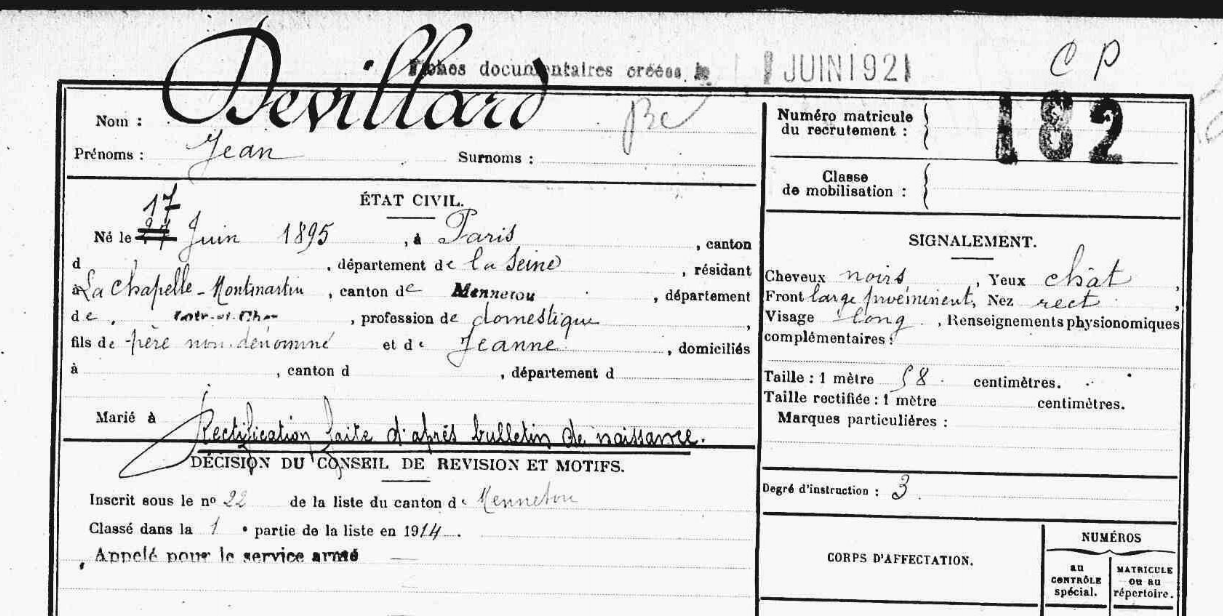 Fiches documentaires créées le 1 JUIN 1921
C P
Nom : Devillard
Bc
Prénoms : Jean Surnoms :
Numéro matricule
du recrutement : 182
Classe
de mobilisation :
ÉTAT CIVIL.
17
Né le 27 Juin 1895, à Paris, canton
d , département de la Seine, résidant
à La Chapelle-Montmartin, canton de Mennetou, département
de Loir-et-Cher, profession de domestique,
fils de père non dénommé et de Jeanne, domiciliés
à , canton d , département d
Marié à
Rectification faite d'après bulletin de naissance.
DÉCISION DU CONSEIL DE REVISION ET MOTIFS.
Inscrit sous le nº 22 de la liste du canton de Mennetou
Classé dans la 1e partie de la liste en 1914.
Appelé pour le service armé
SIGNALEMENT.
Cheveux noirs, Yeux chât,
Front large proéminent, Nez rect,
Visage long, Renseignements physionomiques
complémentaires :
Taille : 1 mètre 58 centimètres.
Taille rectifiée : 1 mètre centimètres.
Marques particulières :
Degré d'instruction : 3.
CORPS D'AFFECTATION.
NUMÉROS
au
CONTRÔLE
spécial.
MATRICULE
ou au
répertoire.